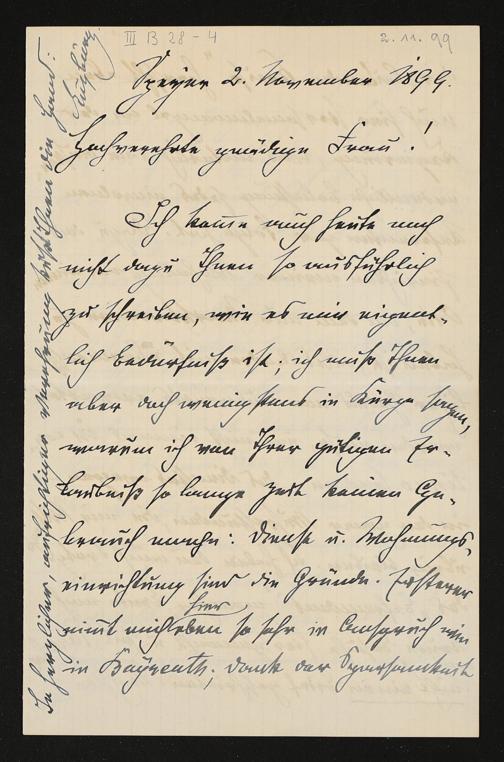 III B 28 - 4
2. 11. 99
Speyer 2. November 1899.
Hochverehrte gnädige Frau!
Ich komme auch heute noch
nicht dazu Ihnen so ausführlich
zu schreiben, wie es mir eigent-
lich Bedürfniß ist; ich muß Ihnen
aber doch wenigstens in Kürze sagen,
warum ich von Ihrer gütigen Er-
laubniß so lange Zeit keinen Ge-
brauch mache: Dienst u. Wohnungs-
einrichtung sind die Gründe. Ersterer
nimmt mich hier eben so sehr in Anspruch wie
in Bayreuth; dank der Sparsamkeit
In herzlicher, aufrichtiger Verehrung küßt Ihnen die Hand: